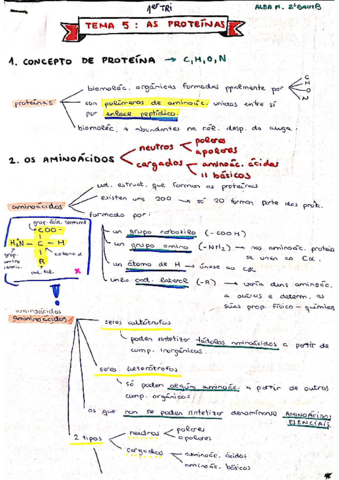 1er TRI
ALBA M. 2ºBACH B
TEMA 5: AS PROTEÍNAS
1. CONCEPTO DE PROTEÍNA → C, H, O, N
proteínas
biomoléc. orgánicas formadas ppalmente por
C
H
O
N
son polímeros de aminoác. unidos entre sí
por enlace peptídico.
biomoléc. + abundantes na cél. desp. da auga.
2. OS AMINOÁCIDOS
neutros
polares
apolares
cargados
aminoác. ácidos
" básicos
aminoácidos
ud. estrut. que forman as proteínas
existen uns 200 → só 20 forman parte das prot.
formado por:
un grupo carboxilo (-COOH)
un grupo amino (-NH₂) → nos aminoác. proteic
se unen ao Cα.
un átomo de H → únese ao Cα
unha cad. lateral (-R) → varía duns aminoác.
a outros e determ. as
súas prop. físico-químicas
COO-
H₃N - C - H
R
cad. lat.
aminoácidos
aminoácidos
seres autótrofos
poden sintetizar tódolos aminoácidos a partir de
comp. inorgánicos.
seres heterótrofos
só poden algúns aminoác. a partir de outros
comp. orgánicos.
os que non se poden sintetizar denomínanse AMINOÁCIDOS
ESENCIAIS
2 tipos
neutros
polares
apolares
cargados
aminoác. ácidos
aminoác. básicos